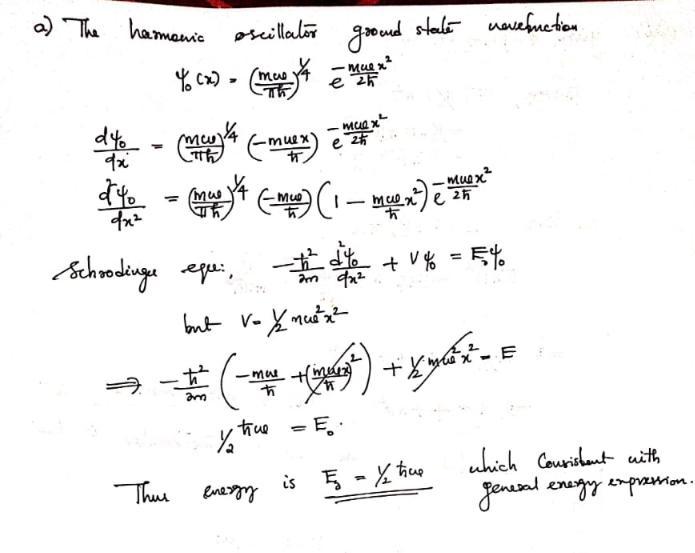 a) The harmonic oscillator ground state wavefunction
ψ₀(x) = (mω/πħ)^1/4 e^(-mωx²/2ħ)
dψ₀/dx = (mω/πħ)^1/4 (-mωx/ħ) e^(-mωx²/2ħ)
d²ψ₀/dx² = (mω/πħ)^1/4 (-mω/ħ) (1 - mωx²/ħ) e^(-mωx²/2ħ)
Schrodinger equ:, -ħ²/2m d²ψ₀/dx² + Vψ₀ = E₀ψ₀
but V = ½ mω²x²
⟹ -ħ²/2m (-mω/ħ + (mωx/ħ)²) + ½ mω²x² = E
½ ħω = E₀.
Thus energy is E₀ = ½ ħω which Consistent with
general energy expression.